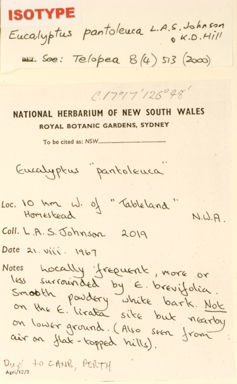 ISOTYPE
Eucalyptus pantoleuca L.A.S. Johnson
& K.D. Hill
See: Telopea 8(4) 513 (2000)
C.17°17' 126°44'
NATIONAL HERBARIUM OF NEW SOUTH WALES
ROYAL BOTANIC GARDENS, SYDNEY
To be cited as: NSW
Eucalyptus "pantoleuca"
Loc. 10 km W. of "Tableland"
Homestead N.W.A.
Coll. L.A.S. Johnson 2019
Date 21. viii. 1967
Notes Locally frequent, more or
less surrounded by E. brevifolia.
Smooth powdery white bark. Not
on the E. lirata site but nearby
on lower ground. (Also seen from
air on flat-topped hills).
Dup to CANB, PERTH